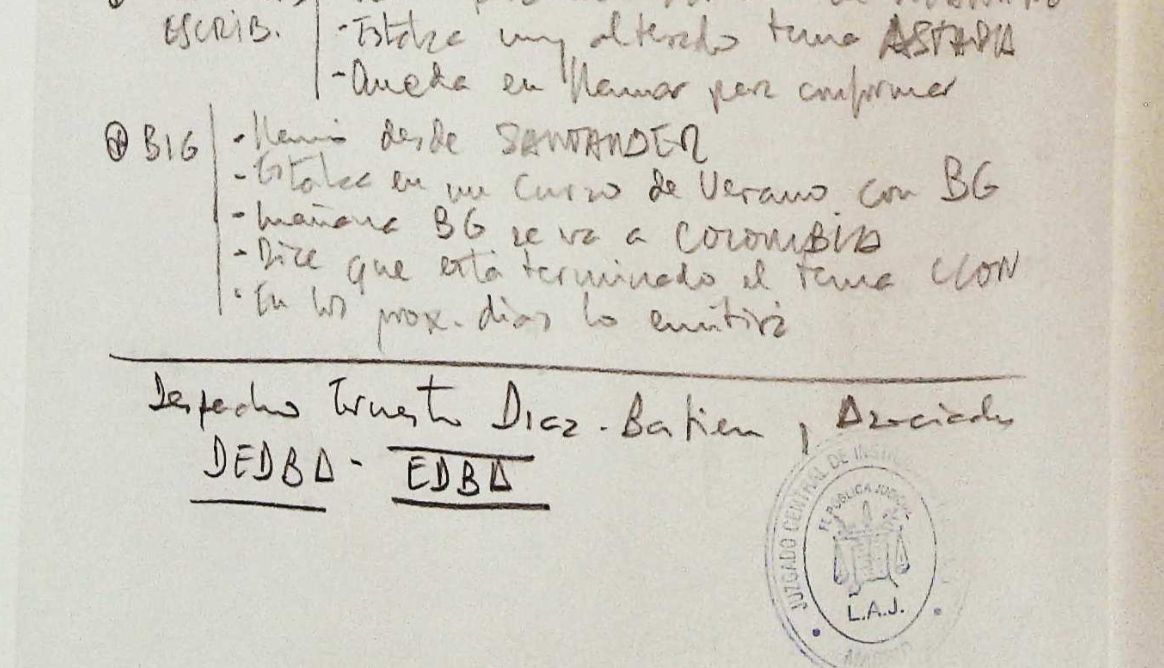 ESCRIB. - Estaba muy alterado tema ASTAPA
- Queda en llamar para confirmar
BIG - Llamó desde SANTANDER
- Estaba en un curso de Verano con BG
- Mañana BG se va a COLOMBIA
- Dice que está terminado el tema CLON
- En los prox. dias lo emitirá
Despacho Ernesto Diaz-Bastien y Asociados
DEDBA - EDBA
JUZGADO CENTRAL DE INSTR
FE PÚBLICA JUDICIAL
L.A.J.